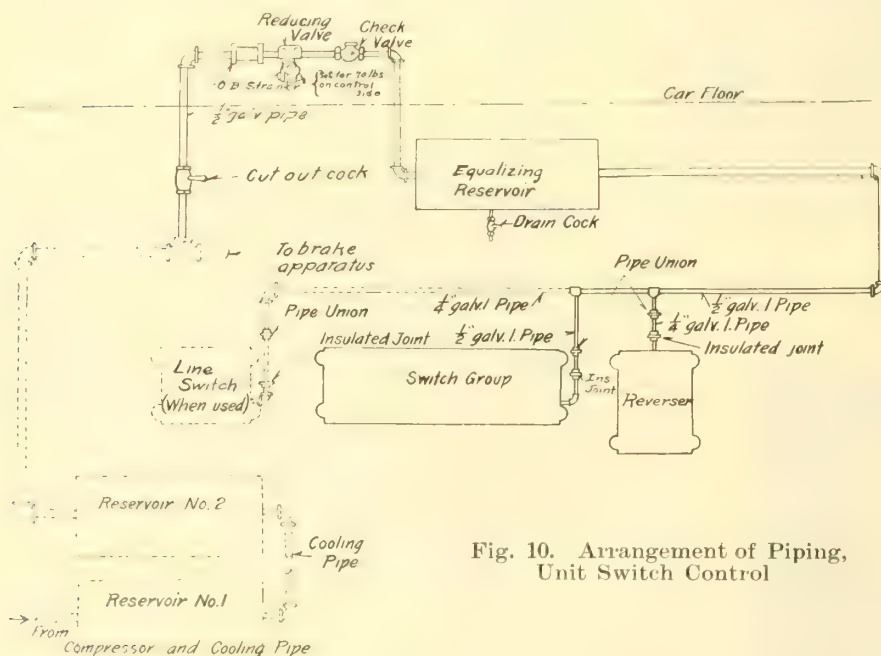 Reducing
Valve
Check
Valve
O B Strainer
Set for 70 lbs
on control
side
Car Floor
½" air pipe
Cut out cock
Equalizing
Reservoir
Drain Cock
To brake
apparatus
Pipe Union
Pipe Union
¼" galv. I Pipe
½" galv. I Pipe
Insulated Joint
½" galv. I. Pipe
¼" galv. I. Pipe
Insulated joint
Line
Switch
(When used)
Switch Group
Ins
Joint
Reverser
Reservoir No. 2
Cooling
Pipe
Reservoir No. 1
From
Compressor and Cooling Pipe
Fig. 10. Arrangement of Piping,
Unit Switch Control